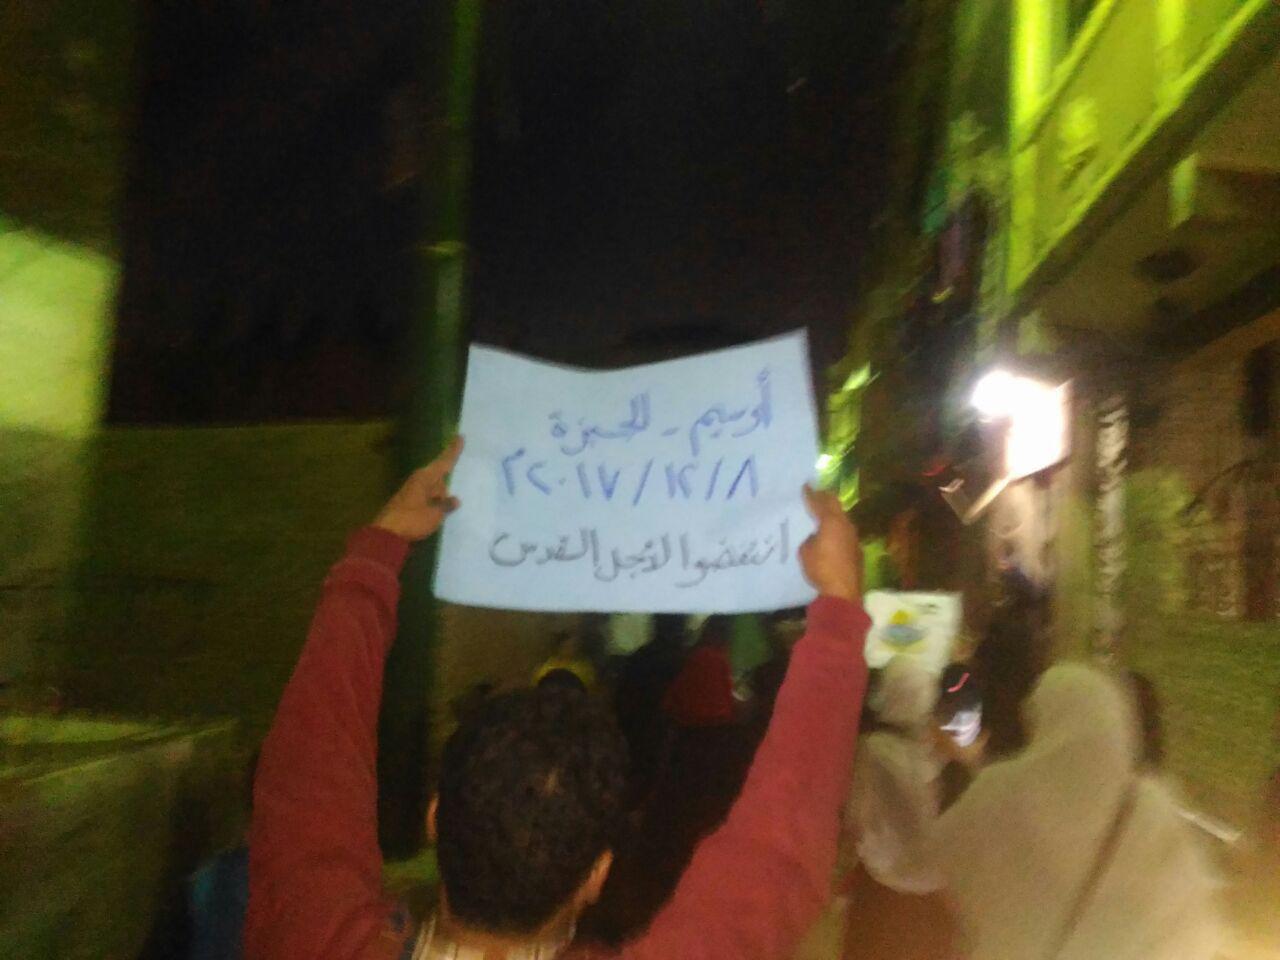 أوسيم - الجيزة
٢٠١٧/١٢/٨م
انتفضوا لأجل القدس